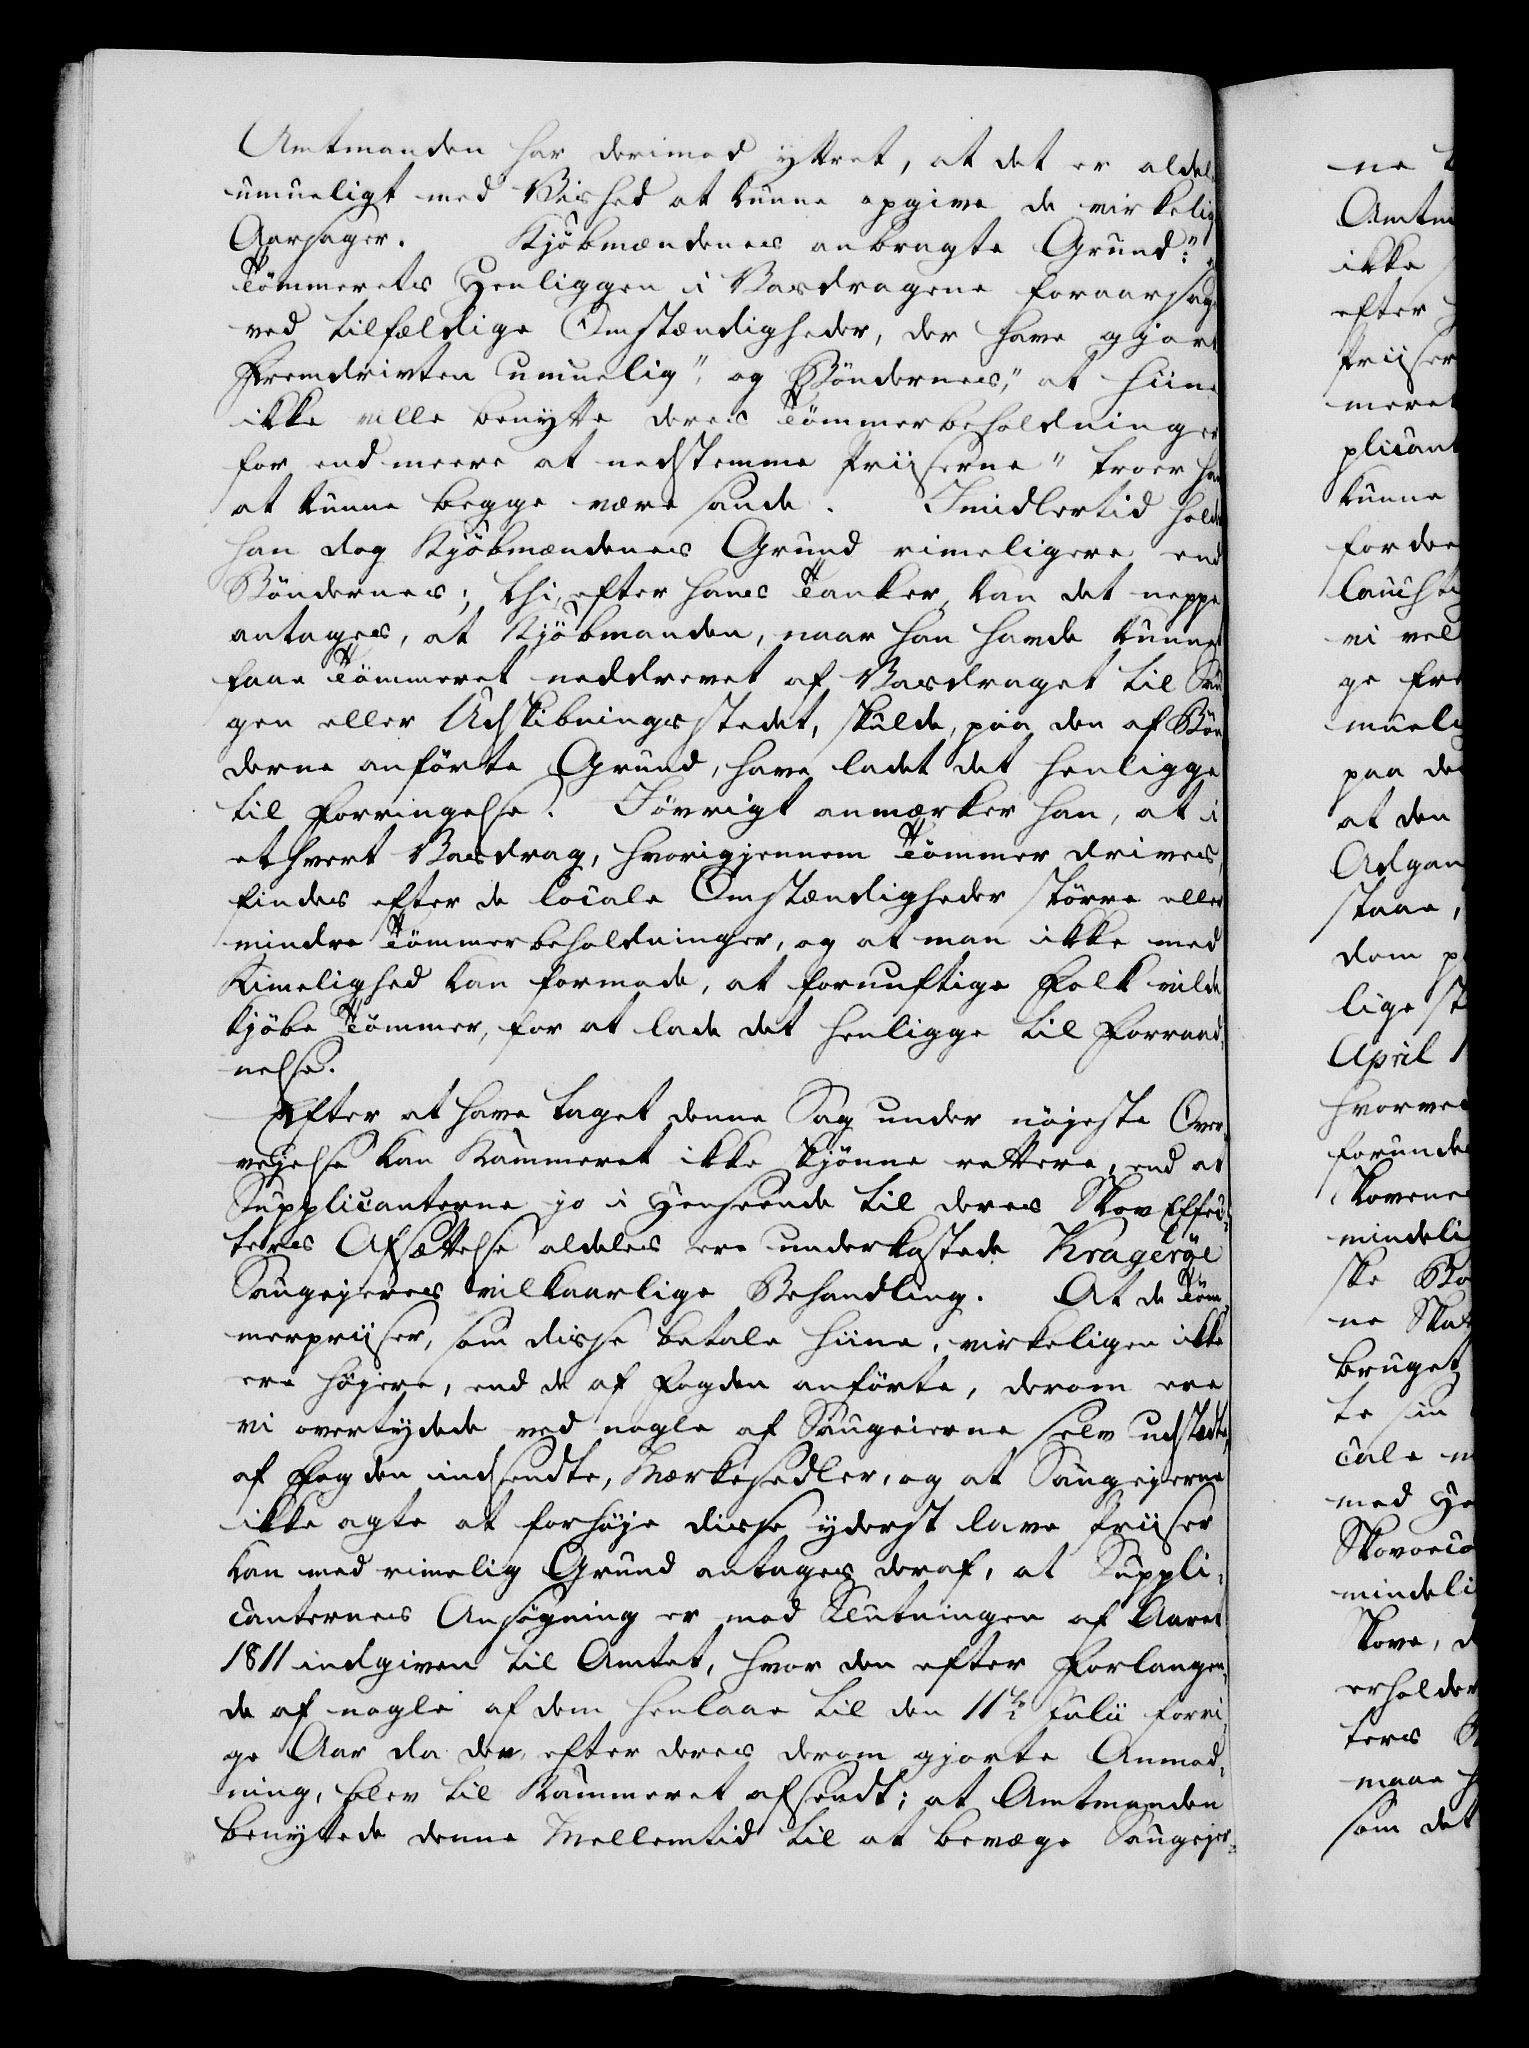 Amtmanden har derimod yttret, at det er aldel
umueligt med Vished at kunne opgive de virkelig
Aarsager. Kjöbmændenes anbragte Grund: "
Tömmerets Henliggen i Vasdragene foraarsag
ved tilfældige Omstændigheder, der have gjort
Fremdrivten umuelig", og Böndernes, "at hiine
ikke ville benytte deres Tömmerbeholdninger
for end meere at nedstemme Priiserne" troer han
at kunne begge være sande. Imidlertid holde
han dog Kjöbmændenes Grund rimeligere end
Böndernes; thi, efter hans Tanker, kan det neppe
antages, at Kjöbmanden, naar han havde kunnet
faae Tömmeret neddrevet af Vasdraget til Sau
gen eller Udskibningsstedet, skulde, paa den af Bön
derne anförte Grund, have ladet det henligge
til Forringelse. Iövrigt anmærker han, at i
ethvert Vasdrag, hvorigjennem Tömmer drives,
findes efter de locale Omstændigheder större eller
mindre Tömmerbeholdninger, og at man ikke med
Rimelighed kan formode, at fornuftige Folk vilde
kjöbe Tömmer, for at lade det henligge til Forraad,
nelse.
Efter at have taget denne Sag under nöjeste Over,
vejelse kan Kammeret ikke skjönne rettere, end at
Supplicanterne jo i Henseende til deres Skov Effec,
ters Afsættelse aldeles ere underkastede Kragerøe
Saugejeres vilkaarlige Behandling. At de Töm,
merpriiser, som disse betale hiine, virkeligen ikke
ere höjere, end de af Fogden anförte, derom ere
vi overtydede ved nogle af Saugeierne selv udstædte,
af Fogden indsendte, Mærkesedler, og at Saugejerne
ikke agte at forhöje disse yderst lave Priiser
kan med rimelig Grund antages deraf, at Suppli,
canternes Ansögning er mod Slutningen af Aaret
1811 indgiven til Amtet, hvor den efter Forlangen,
de af nogle af dem henlaae til den 11te Julii forri,
ge Aar da den, efter deres derom gjorte Anmod,
ning, blev til Kammeret afsendt; at Amtmanden
benyttede denne Mellemtid til at bevæge Saugejer-
ne
Amtm
ikke
efter
Priiser
meret
plicant
kunne
fordee
lauchti
vi vel
ge fre
mueli
paa de
at den
Adgan
staae,
dom p
lige st
April 1
hvorved
forunde
Skovene
mindeli
ske Bo
ne Ska
bruget
te sin
cale m
med He
Skovoeco
mindeli
Skove, d
erholder
ters
maae h
som det